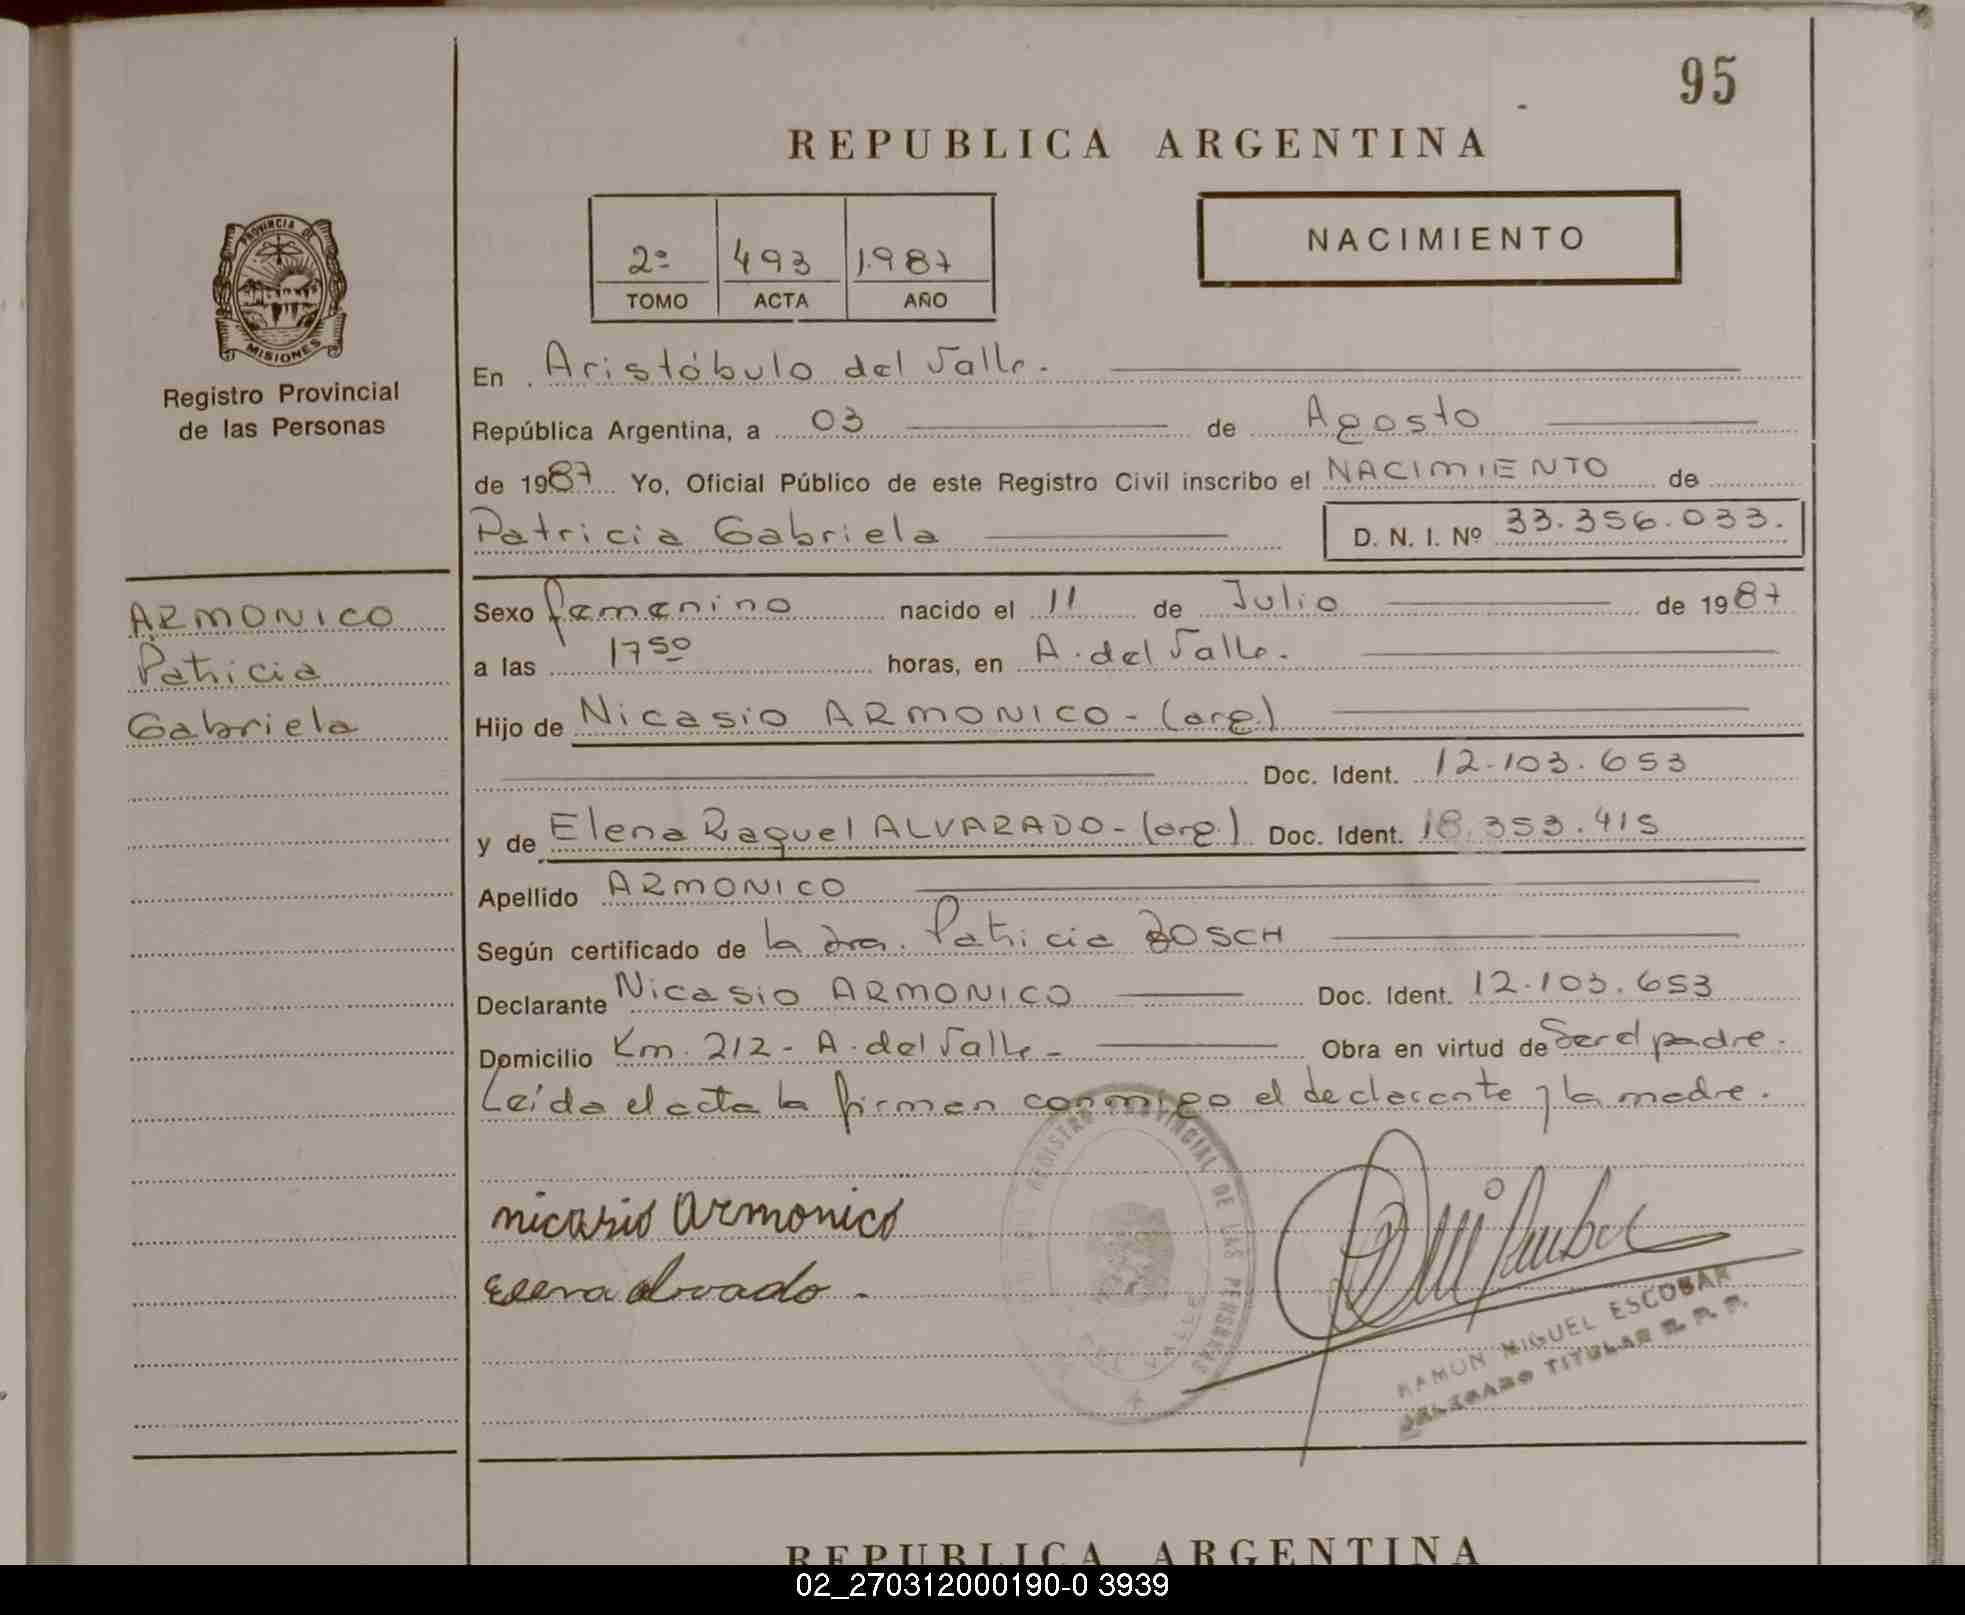 95
REPUBLICA ARGENTINA
2º 493 1.987
TOMO ACTA AÑO
NACIMIENTO
PROVINCIA DE
MISIONES
Registro Provincial
de las Personas
En Aristóbulo del Valle.
República Argentina, a 03 de Agosto
de 1987 Yo, Oficial Público de este Registro Civil inscribo el NACIMIENTO de
Patricia Gabriela D. N. I. Nº 33.356.033.
ARMONICO
Patricia
Gabriela
Sexo femenino nacido el 11 de Julio de 1987
a las 17 50 horas, en A. del Valle.
Hijo de Nicasio ARMONICO - (arg.)
Doc. Ident. 12.103.653
y de Elena Raquel ALVARADO - (arg.) Doc. Ident. 18.353.415
Apellido ARMONICO
Según certificado de la dra. Patricia BOSCH
Declarante Nicasio ARMONICO Doc. Ident. 12.103.653
Domicilio Km. 212 - A. del Valle - Obra en virtud de Ser el padre.
Leída el acta la firman conmigo el declarante y la madre.
REGISTRO PROVINCIAL DE LAS PERSONAS
VALLE
nicasio Armonico
Elena alvado.
RAMON MIGUEL ESCOBAR
DELEGADO TITULAR R. P. P.
REPUBLICA ARGENTINA
02_270312000190-0 3939